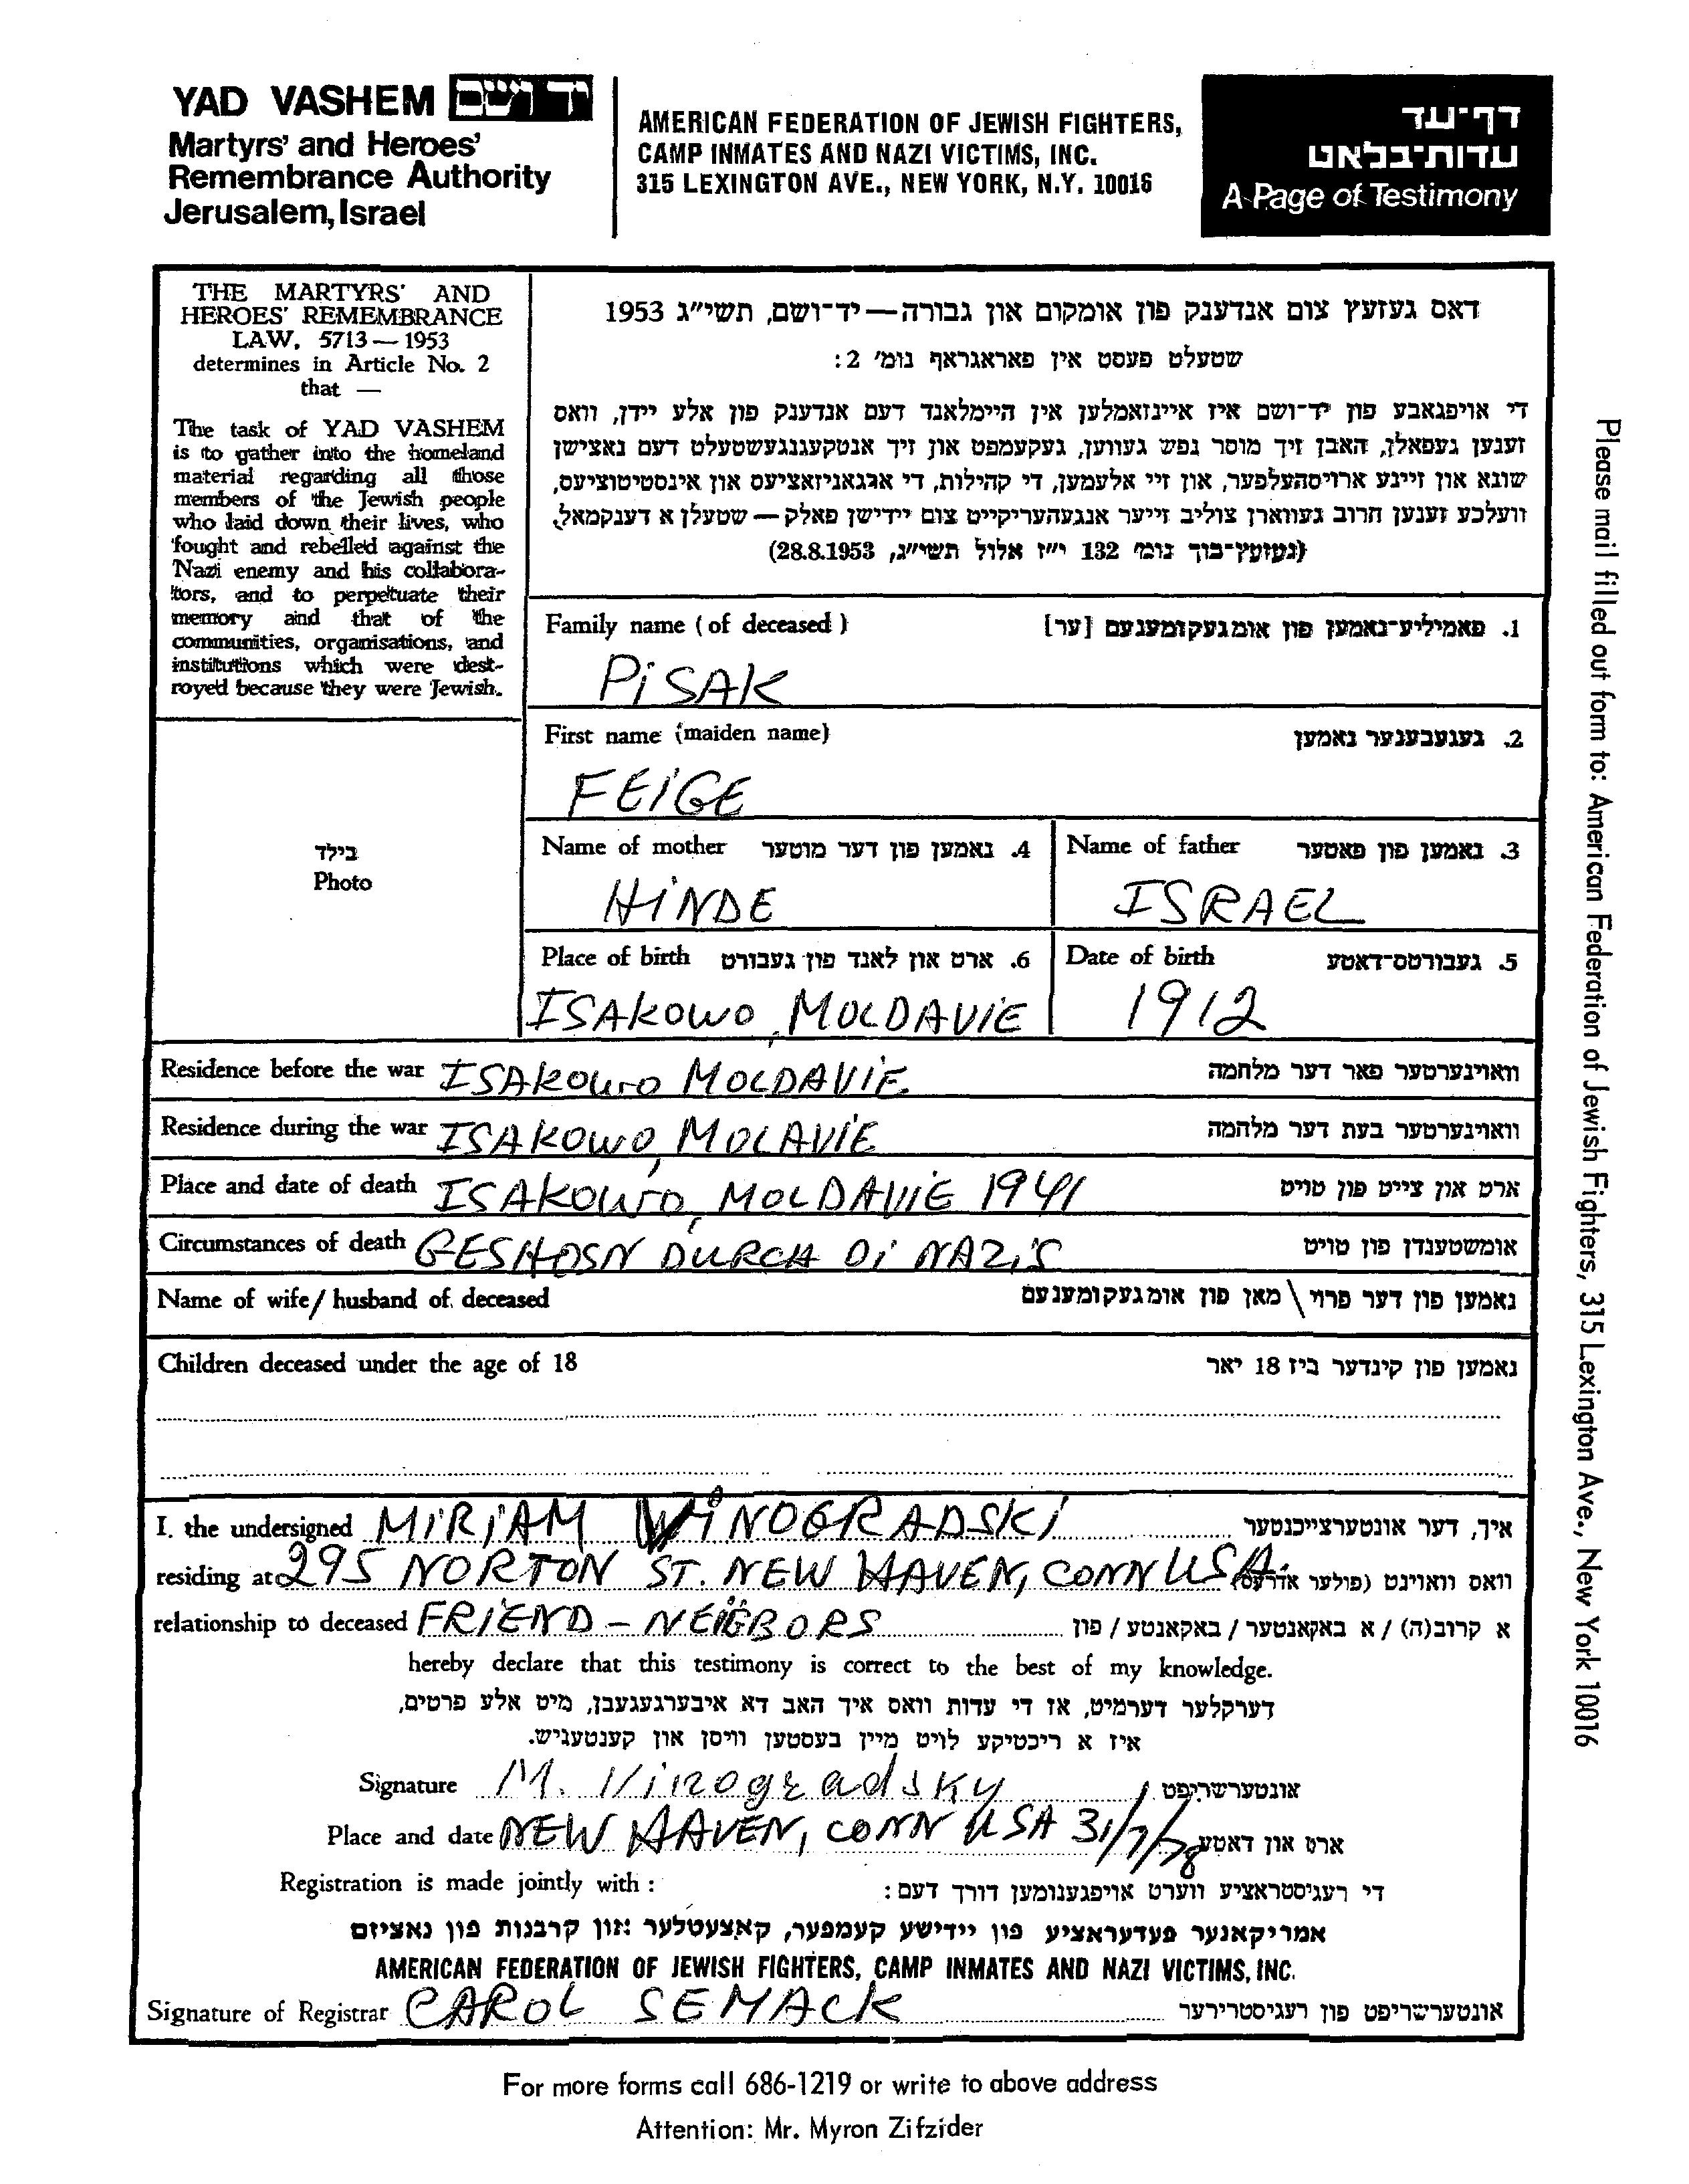 YAD VASHEM יד ושם
Martyrs' and Heroes'
Remembrance Authority
Jerusalem, Israel
AMERICAN FEDERATION OF JEWISH FIGHTERS,
CAMP INMATES AND NAZI VICTIMS, INC.
315 LEXINGTON AVE., NEW YORK, N.Y. 10016
דף-עד
עדות-בלאט
A Page of Testimony
THE MARTYRS' AND
HEROES' REMEMBRANCE
LAW, 5713—1953
determines in Article No. 2
that —
The task of YAD VASHEM
is to gather into the homeland
material regarding all those
members of the Jewish people
who laid down their lives, who
fought and rebelled against the
Nazi enemy and his collabora-
tors, and to perpetuate their
memory and that of the
communities, organisations, and
institutions which were dest-
royed because they were Jewish.
דאס געזעץ צום אנדענק פון אומקום און גבורה — יד-ושם, תשי"ג 1953
שטעלט פעסט אין פאראגראף נומ' 2:
די אויפגאבע פון יד-ושם איז איינזאמלען אין היימלאנד דעם אנדענק פון אלע יידן, וואס
זענען געפאלן, האבן זיך מוסר נפש געווען, געקעמפט און זיך אנטקעגנגעשטעלט דעם נאצישן
שונא און זיינע ארויסהעלפער, און זיי אלעמען, די קהילות, די ארגאניזאציעס און אינסטיטוציעס,
וועלכע זענען חרוב געווארן צוליב זייער אנגעהעריקייט צום יידישן פאלק — שטעלן א דענקמאל.
(געזעץ-בוך נומ' 132 י"ז אלול תשי"ג, 28.8.1953)
Family name (of deceased) 1. פאמיליע-נאמען פון אומגעקומענעם [ער]
PiSAK
First name (maiden name) 2. געגעבענער נאמען
FEIGE
Name of mother 4. נאמען פון דער מוטער
HiNDE
Name of father 3. נאמען פון פאטער
ISRAEL
Place of birth 6. ארט און לאנד פון געבורט
ISAKOWO, MOLDAVIE
Date of birth 5. געבורטס-דאטע
1912
בילד
Photo
Residence before the war ISAKOWO MOLDAVIE וואוינערטער פאר דער מלחמה
Residence during the war ISAKOWO, MOLAVIE וואוינערטער בעת דער מלחמה
Place and date of death ISAKOWO, MOLDAVIE 1941 ארט און צייט פון טויט
Circumstances of death GESHOSN DURCH Di NAZiS אומשטענדן פון טויט
Name of wife/ husband of deceased נאמען פון דער פרוי \ מאן פון אומגעקומענעם
Children deceased under the age of 18 נאמען פון קינדער ביז 18 יאר
I. the undersigned MIRIAM WINOGRADSKI איך, דער אונטערצייכנטער
residing at 295 NORTON ST. NEW HAVEN, CONN USA. וואס וואוינט (פולער אדרעס)
relationship to deceased FRIEND - NEIGBORS א קרוב(ה) / א באקאנטער / באקאנטע / פון
hereby declare that this testimony is correct to the best of my knowledge.
דערקלער דערמיט, אז די עדות וואס איך האב דא איבערגעגעבן, מיט אלע פרטים,
איז א ריכטיקע לויט מיין בעסטען וויסן און קענטעניש.
Signature M. Vinogradsky אונטערשריפט
Place and date NEW HAVEN, CONN USA 31/7/78 ארט און דאטע
Registration is made jointly with : די רעגיסטראציע ווערט אויפגענומען דורך דעם:
אמריקאנער פעדעראציע פון יידישע קעמפער, קאצעטלער און קרבנות פון נאציזם
AMERICAN FEDERATION OF JEWISH FIGHTERS, CAMP INMATES AND NAZI VICTIMS, INC.
Signature of Registrar CAROL SEMACK אונטערשריפט פון רעגיסטרירער
For more forms call 686-1219 or write to above address
Attention: Mr. Myron Zifzider
Please mail filled out form to: American Federation of Jewish Fighters, 315 Lexington Ave., New York 10016